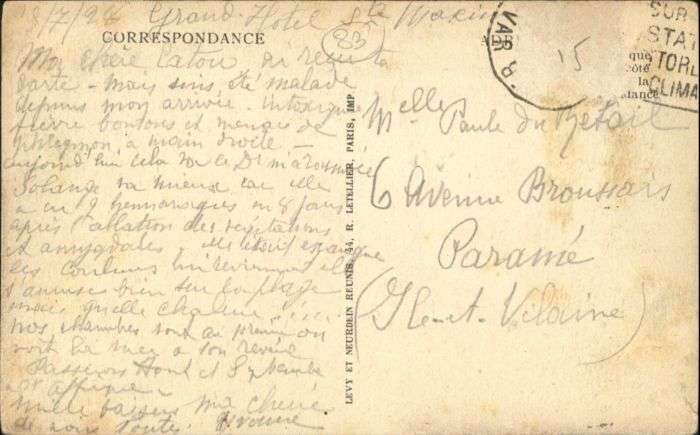 8/7/28 Grand Hotel Ste Maxime
(83)
CORRESPONDANCE
Ma chère Catou ai reçu ta
carte - mais suis été malade
depuis mon arrivée. Intoxiquée
fièvre boutons et menace de
phlegmon à main droite -
aujourd'hui cela va le Dr m'a
Solange va mieux car elle
a eu 9 hemorragies en 8 jours
après l'ablation des végétations
et amygdales - elle était
ses couleurs lui reviennent et
s'amuse bien sur la plage
mais quelle chaleur
nos chambres sont au premier on
voit la mer à son
Août et Septembre
Mille baisers ma chérie
de nous toutes. Yvonne
LEVY ET NEURDEIN REUNIS, 44, R. LETELLIER, PARIS, IMP
VAR
15
SUR
STAT
CLIMA
que
côté
la
Melle Paule du Retail
6 Avenue Broussais
Paramé
(Ile-et-Vilaine)